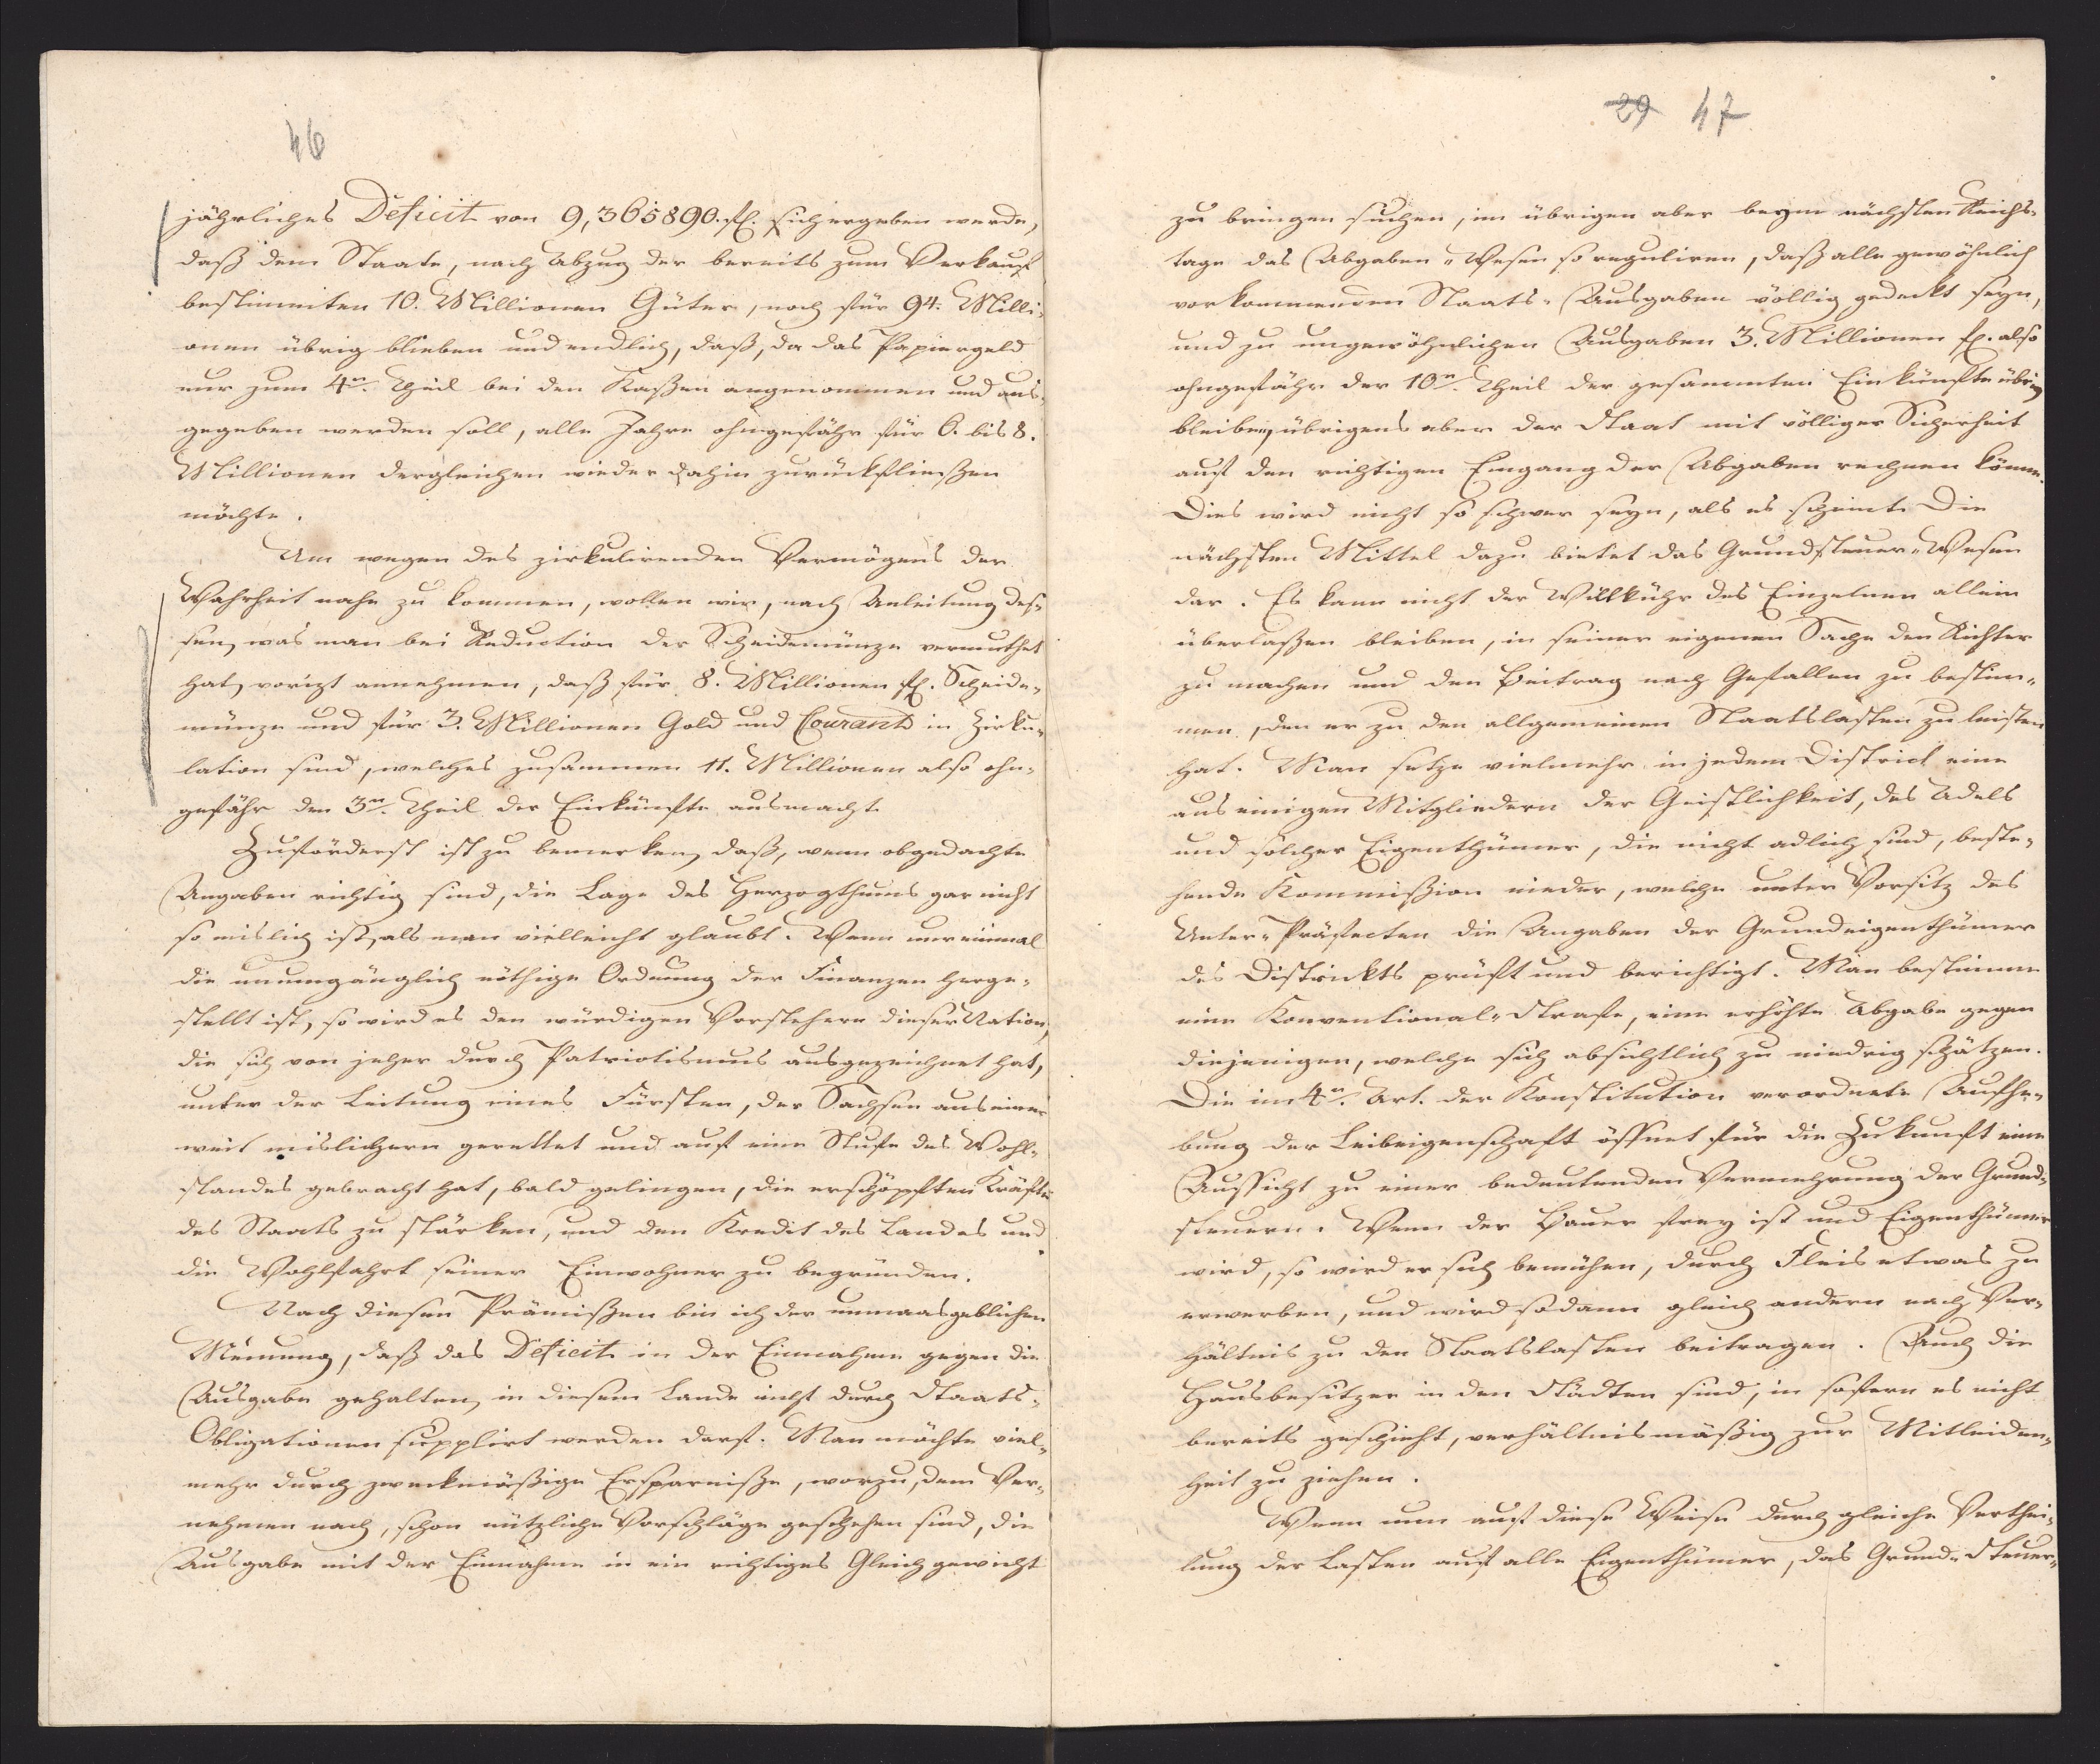 46
jährliches Deficit von 9,365890. fl. sich ergeben werde,
daß dem Staate, nach Abzug der bereits zum Verkauf
bestimmten 10. Millionen Güter, noch für 94. Milli-
onen übrig blieben und endlich, daß, da das Papiergeld
nur zum 4n. Theil bei den Kaßen angenommen und aus-
gegeben werden soll, alle Jahre ohngefähr für 6. bis 8.
Millionen dergleichen wieder dahin zurückfließen
möchte.
Um wegen des zirkulirenden Vermögens der
Wahrheit nahe zu kommen, wollen wir, nach Anleitung des-
sen, was man bei Reduction der Scheidemünze vermuthet
hat, vorizt annehmen, daß für 8. Millionen fl. Scheide-
münze und für 3. Millionen Gold und Courant in Zirku-
lation sind, welches zusammen 11. Millionen also ohn-
gefähr den 3n. Theil der Einkünfte ausmacht.
Zuförderst ist zu bemerken, daß, wenn obgedachte
Angaben richtig sind, die Lage des Herzogthums gar nicht
so mislich ist, als man vielleicht glaubt. Wenn nur einmal
die unumgänglich nöthige Ordnung der Finanzen herge-
stellt ist, so wird es den würdigen Vorstehern dieser Nation,
die sich von jeher durch Patriotismus ausgezeichnet hat,
unter der Leitung eines Fürsten, der Sachsen aus einer
weit mislichern gerettet und auf eine Stufe des Wohl-
standes gebracht hat, bald gelingen, die erschöpften Kräfte
des Staats zu stärken, und den Kredit des Landes und
die Wohlfahrt seiner Einwohner zu begründen.
Nach diesen Prämißen bin ich der unmaasgeblichen
Meinung, daß das Deficit in der Einnahme gegen die
Ausgabe gehalten, in diesem Lande nicht durch Staats-
Obligationen supplirt werden darf. Man möchte viel-
mehr durch zweckmäßige Ersparniße, worzu, dem Ver-
nehmen nach, schon nützliche Vorschläge geschehen sind, die
Ausgabe mit der Einnahme in ein richtiges Gleichgewicht
29 47
zu bringen suchen, im übrigen aber beym nächsten Reichs-
tage das Abgaben-Wesen so reguliren, daß alle gewöhnlich
vorkommenden Staats-Ausgaben völlig gedeckt seyn,
und zu ungewöhnlichen Ausgaben 3. Millionen fl. also
ohngefähr der 10n. Theil der gesammten Einkünfte übrig
bleiben, übrigens aber der Staat mit völliger Sicherheit
auf den richtigen Eingang der Abgaben rechnen könne.
Dies wird nicht so schwer seyn, als es scheint. Die
nächsten Mittel dazu bietet das Grundsteuer-Wesen
dar. Es kann nicht der Willkühr des Einzelnen allein
überlaßen bleiben, in seiner eigenen Sache den Richter
zu machen und den Beitrag nach Gefallen zu bestim-
men, den er zu den allgemeinen Staatslasten zu leisten
hat. Man setze vielmehr in jedem District eine
aus einigen Mitgliedern der Geistlichkeit, des Adels
und solcher Eigenthümer, die nicht adlich sind, beste-
hende Kommißion nieder, welche unter Vorsitz des
Unter-Präfecten die Angaben der Grundeigenthümer
des Districkts prüft und berichtigt. Man bestimme
eine Konventional-Strafe, eine erhöhte Abgabe gegen
diejenigen, welche sich absichtlich zu niedrig schätzen.
Die im 4n. Art. der Konstitution verordnete Aufhe-
bung der Leibeigenschaft öffnet für die Zukunft eine
Aussicht zu einer bedeutenden Vermehrung der Grund-
steuern. Wenn der Bauer frey ist und Eigenthümer
wird, so wird er sich bemühen, durch Fleis etwas zu
erwerben, und wird sodann gleich andern nach Ver-
hältnis zu den Staatslasten beitragen. Auch die
Hausbesitzer in den Städten sind, in sofern es nicht
bereits geschieht, verhältnismäßig zur Mitleiden-
heit zu ziehen.
Wenn nun auf diese Weise durch gleiche Verthei-
lung der Lasten auf alle Eigenthümer, das Grund-Steuer-